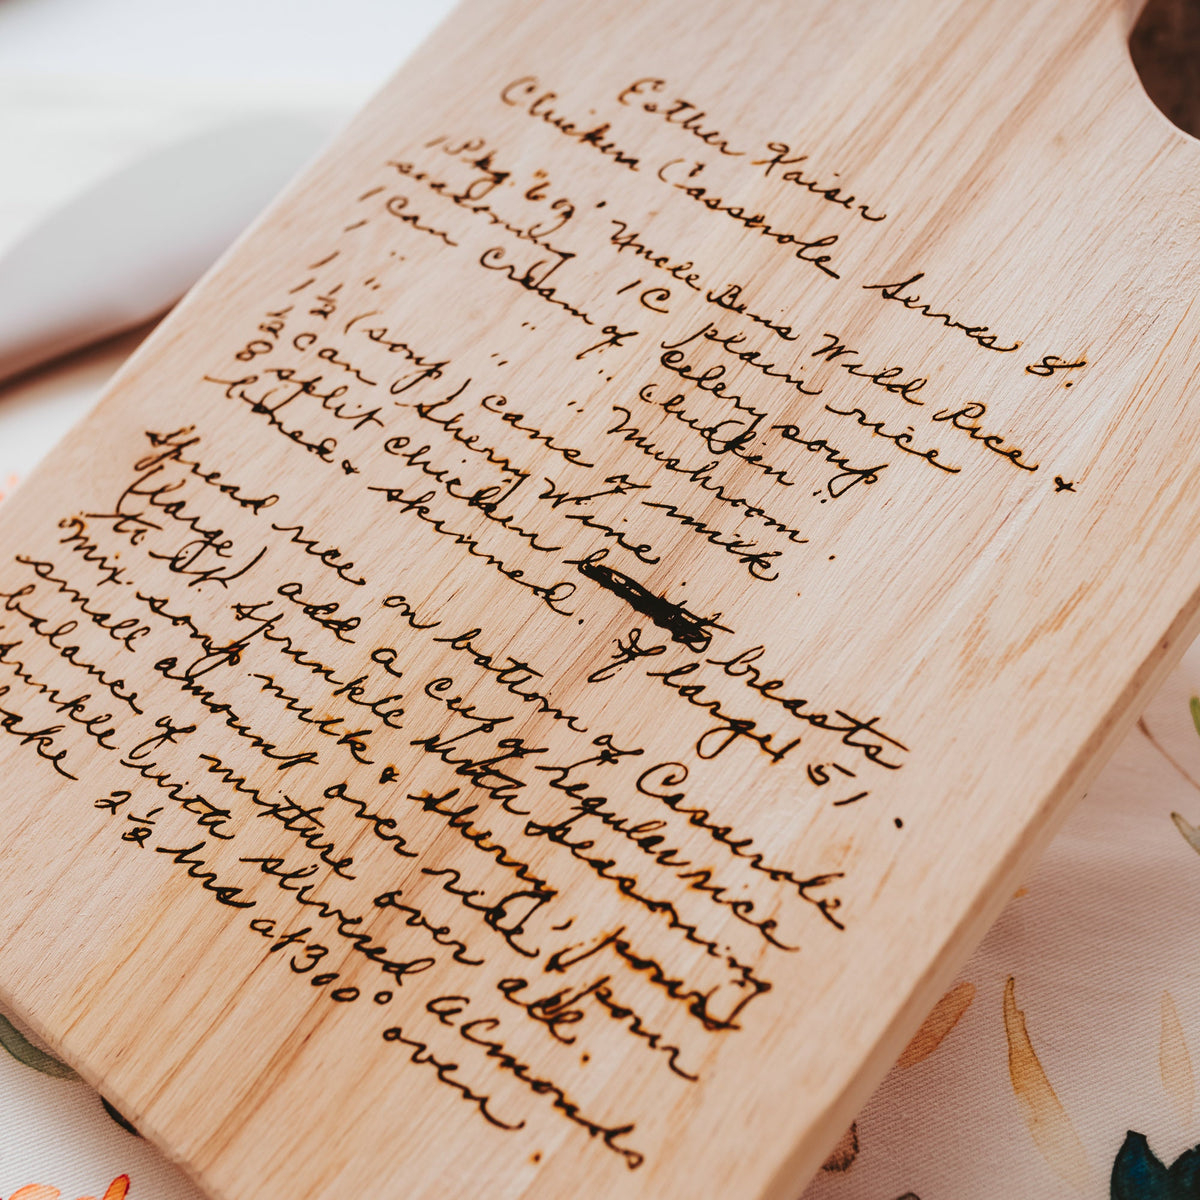 Esther Kaiser
Chicken Casserole Serves 8.
1 Pkg. "6 oz" Uncle Bens Wild Rice &
seasoning 1 C plain rice
1 Can Cream of Celery soup
1 " " " Chicken "
1 " " " Mushroom .
1 1/2 (soup) cans of milk
1/2 can sherry Wine .
8 split chicken breasts
boned & skinned. If large 5,
Spread rice on bottom of Casserole
(large) add a cup of regular rice
to it. Sprinkle with seasoning
Mix soup milk & sherry, pour
small amount over rice, pour
balance of mixture over all.
Sprinkle with slivered almonds
bake 2 1/2 hrs at 300° oven.